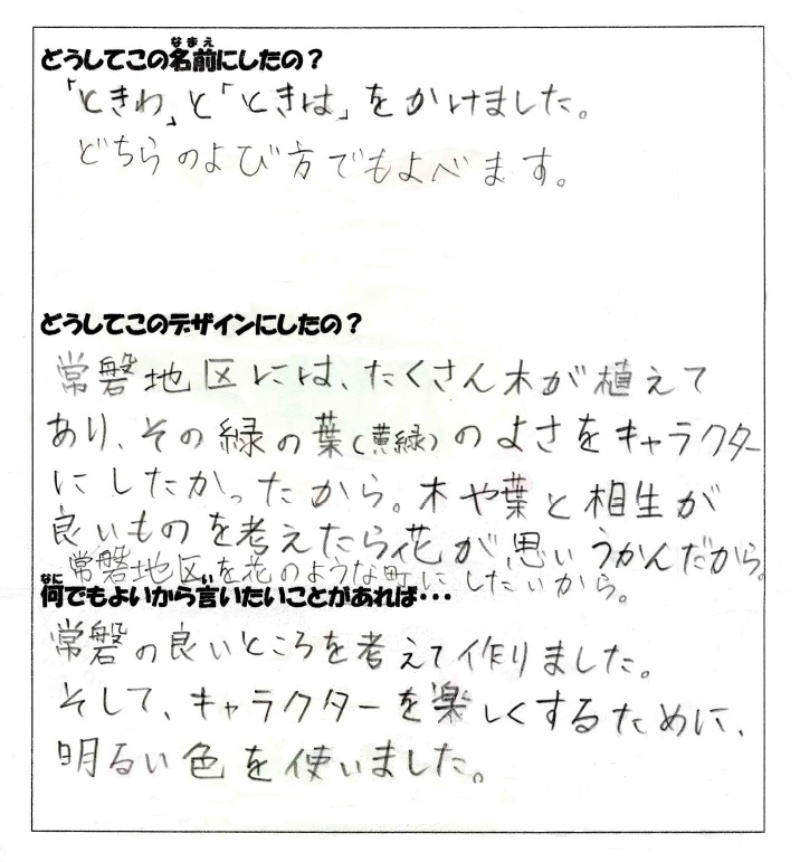 どうしてこの名前にしたの？
「ときわ」と「ときは」をかけました。
どちらのよび方でもよべます。
どうしてこのデザインにしたの？
常磐地区には、たくさん木が植えて
あり、その緑の葉(黄緑)のよさをキャラクター
にしたかったから。木や葉と相生が
良いものを考えたら花が思いうかんだから。
常磐地区を花のような町にしたいから。
何でもよいから言いたいことがあれば・・・
常磐の良いところを考えて作りました。
そして、キャラクターを楽しくするために、
明るい色を使いました。